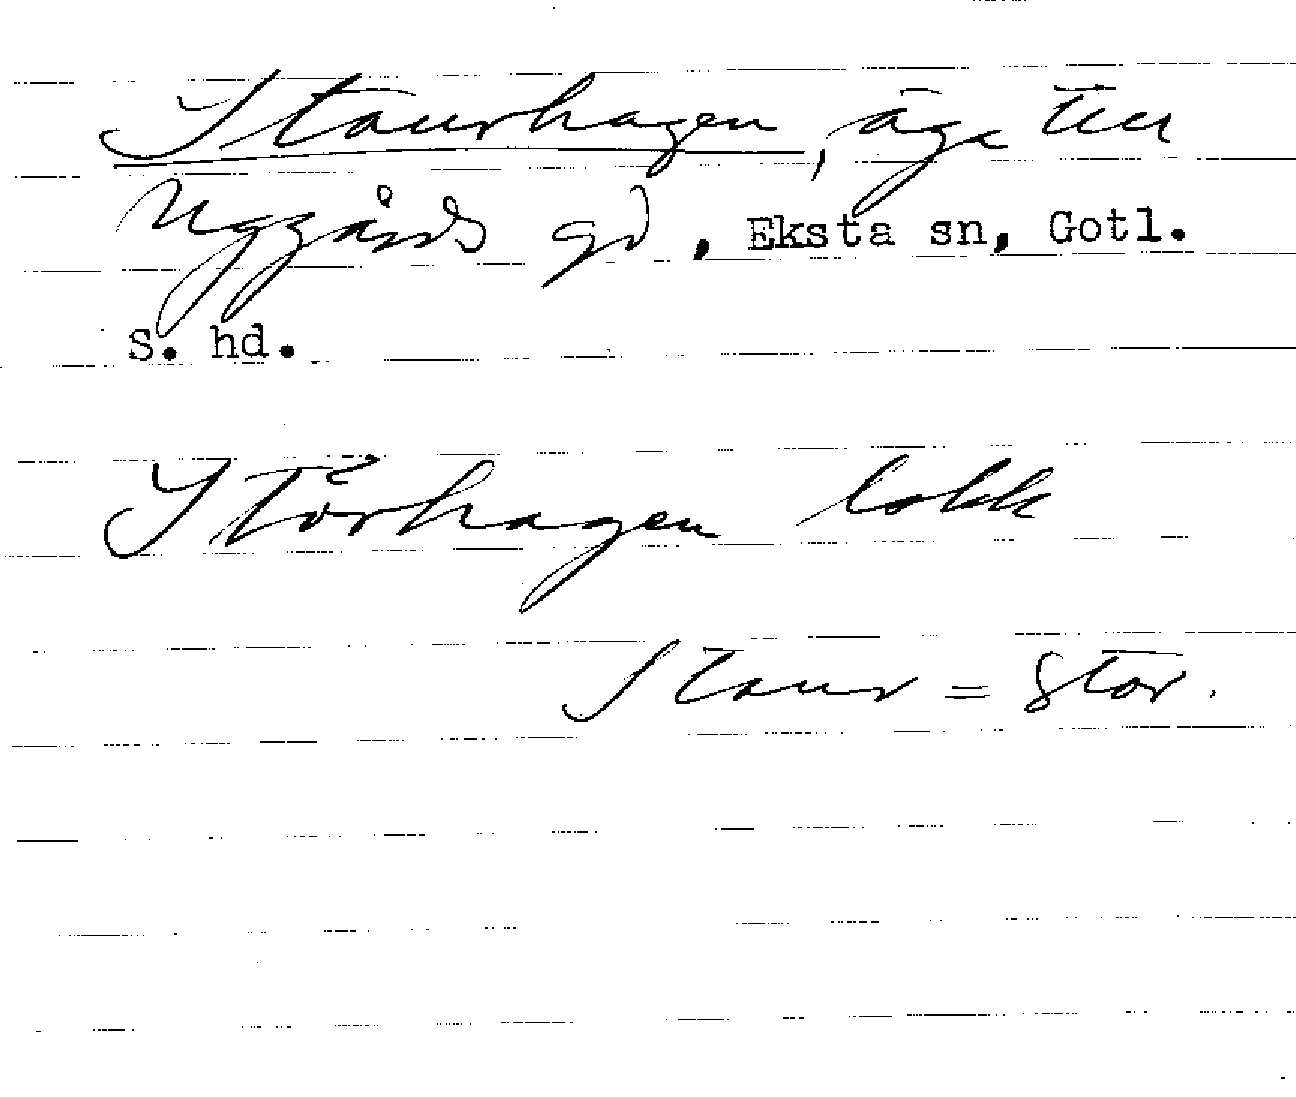 Staurhagen, äga till
Nygårds gd, Eksta sn, Gotl.
S. hd.
Storhagen lokk
Staur = stor.